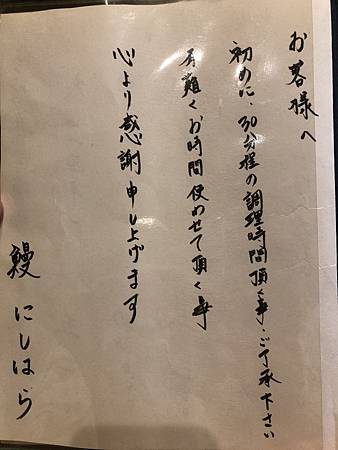 お客様へ
初めに、30分程の調理時間頂く事、ご了承下さい
有難くお時間使わせて頂く事
心より感謝申し上げます
鰻 にしはら